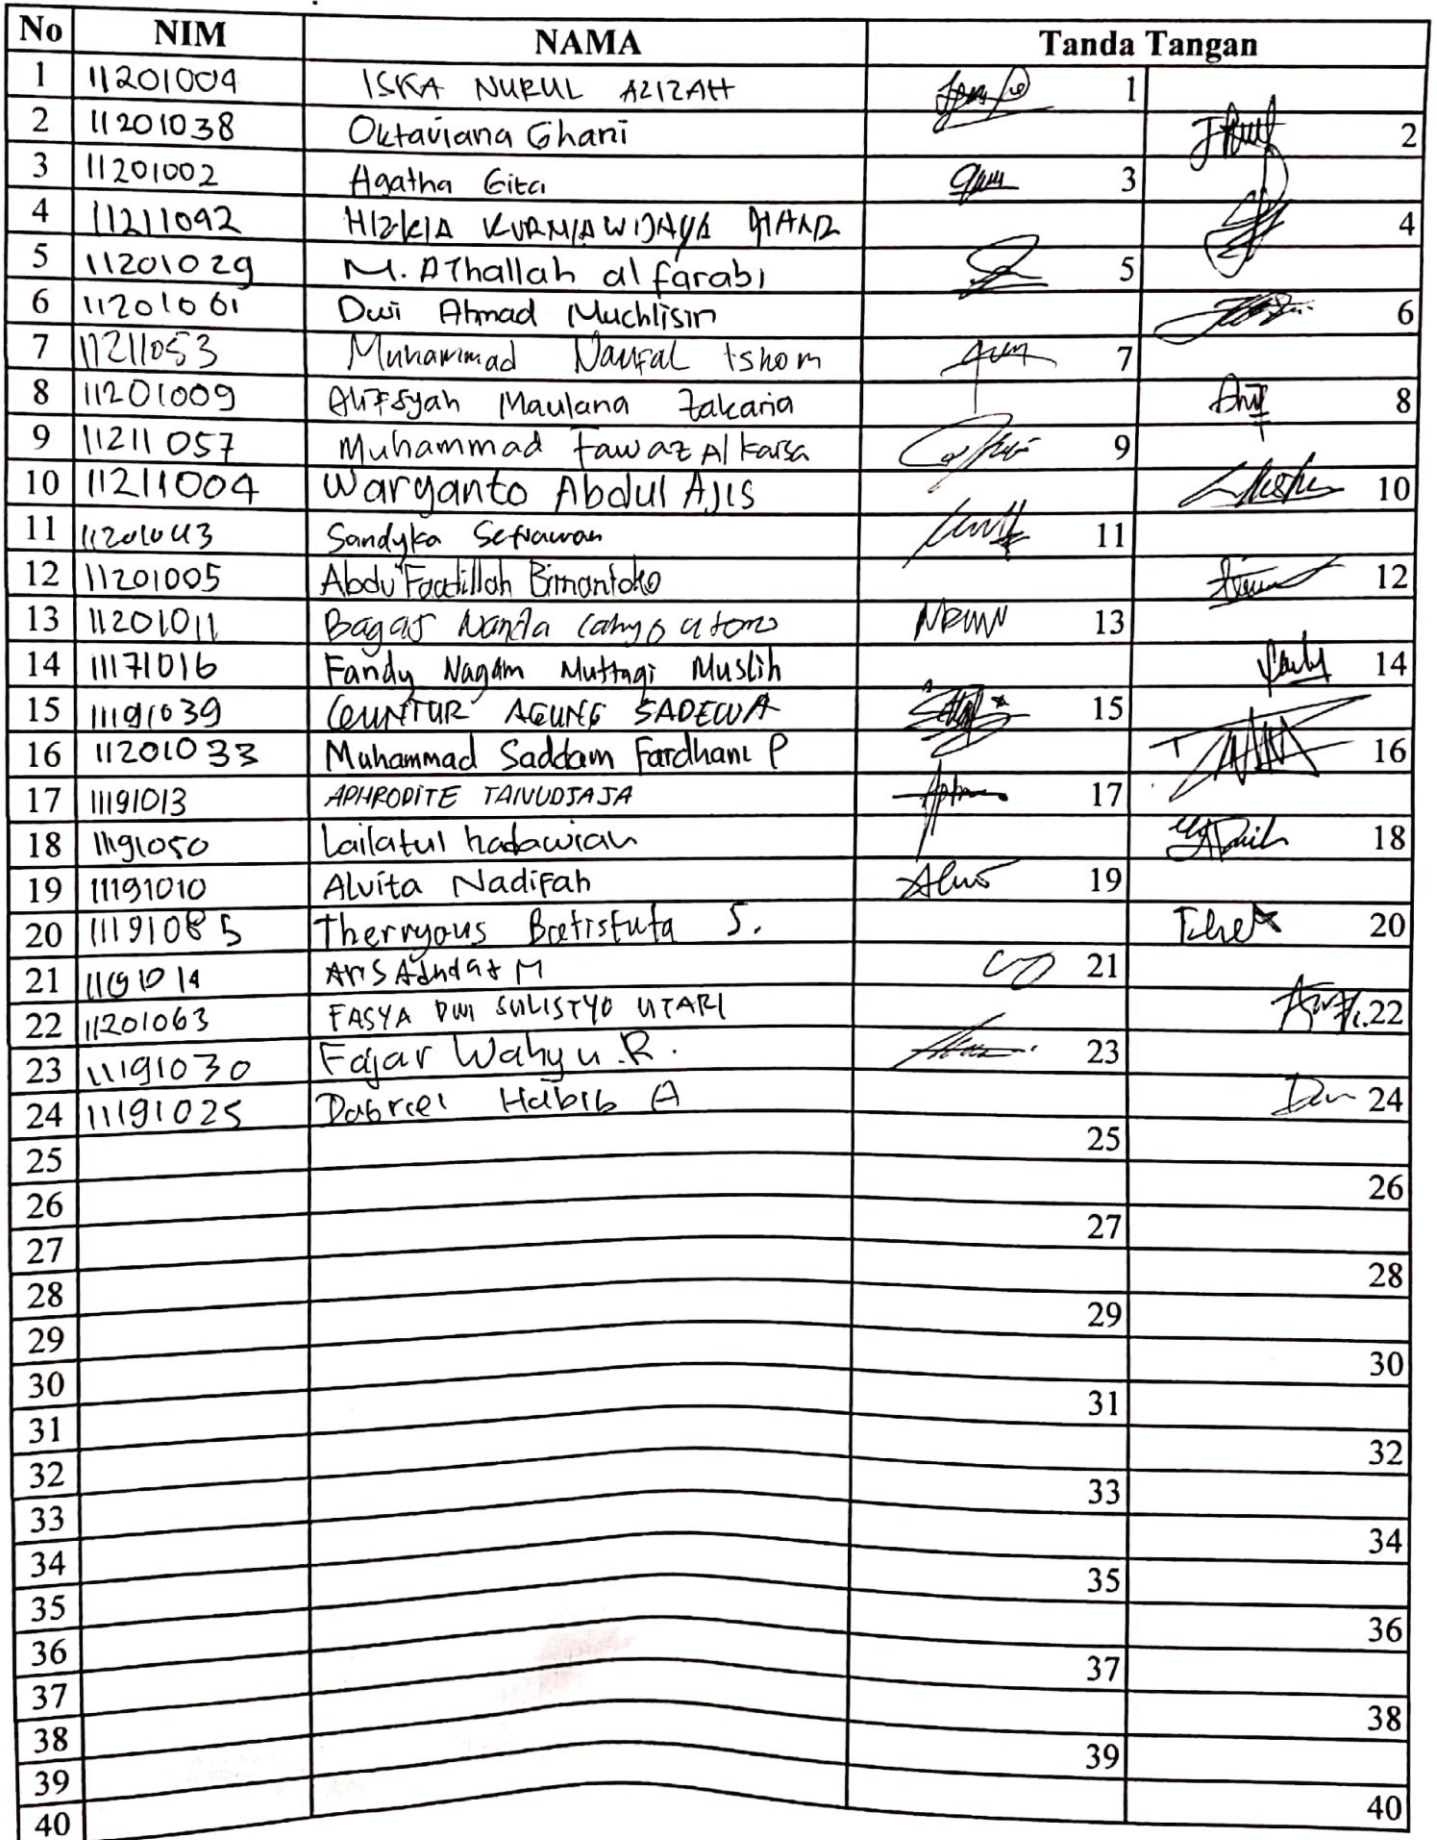 No NIM NAMA Tanda Tangan
1 11201004 ISKA NURUL AZIZAH 1
2 11201038 Oktaviana Ghani 2
3 11201002 Agatha Gita 3
4 11211042 HIZKIA KURNIAWIJAYA 4
5 11201029 M. AThallah al farabi 5
6 11201061 Dwi Ahmad Muchlisin 6
7 11211053 Muhammad Naufal Ishom 7
8 11201009 Alifsyah Maulana Zakaria 8
9 11211057 Muhammad Fawaz Al Karsa 9
10 11211004 Waryanto Abdul Ajis 10
11 11201043 Sandyka Setiawan 11
12 11201005 Abdu Faadillah Bimantoko 12
13 11201011 Bagas Nanda Cahyo utomo 13
14 11171016 Fandy Nagam Muttaqi Muslih 14
15 11191039 GUNTUR AGUNG SADEWA 15
16 11201033 Muhammad Saddam Fardhani P 16
17 11191013 APHRODITE TANUDJAJA 17
18 11191050 Lailatul hadawiah 18
19 11191010 Alvita Nadifah 19
20 11191085 Therryous Batistuta S. 20
21 11191014 Aris M 21
22 11201063 FASYA DWI SULISTYO UTARI 22
23 11191030 Fajar Wahyu.R. 23
24 11191025 Habib A 24
25 25
26 26
27 27
28 28
29 29
30 30
31 31
32 32
33 33
34 34
35 35
36 36
37 37
38 38
39 39
40 40